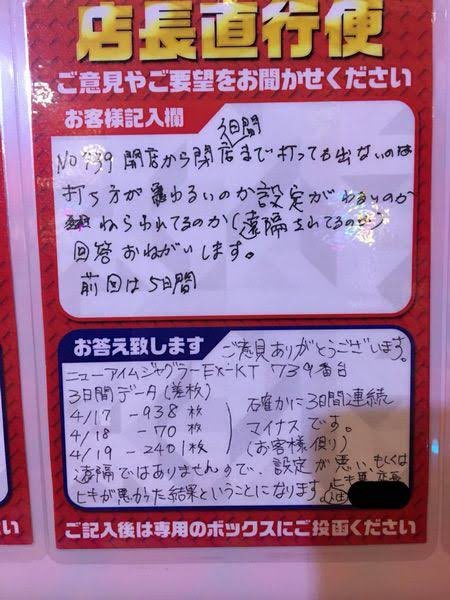 店長直行便
ご意見やご要望をお聞かせください
お客様記入欄
3日間
No 739 開店から閉店まで打っても出ないのは
打ち方が悪わるいのか設定がわるいのか
ねらわれてるのか(遠隔されてるのか)
回答おねがいします。
前回は5日間
お答え致します
ご意見ありがとうございます。
ニューアイムジャグラーEX-KT 739番台
3日間データ(差枚)
4/17 -938枚
4/18 -70枚
4/19 -2401枚
確かに3日間連続
マイナスです。
(お客様側り)
遠隔ではありませんので、設定が悪い、もしくは
ヒキが悪かった結果ということになります。
店長
ご記入後は専用のボックスにご投函ください
さい